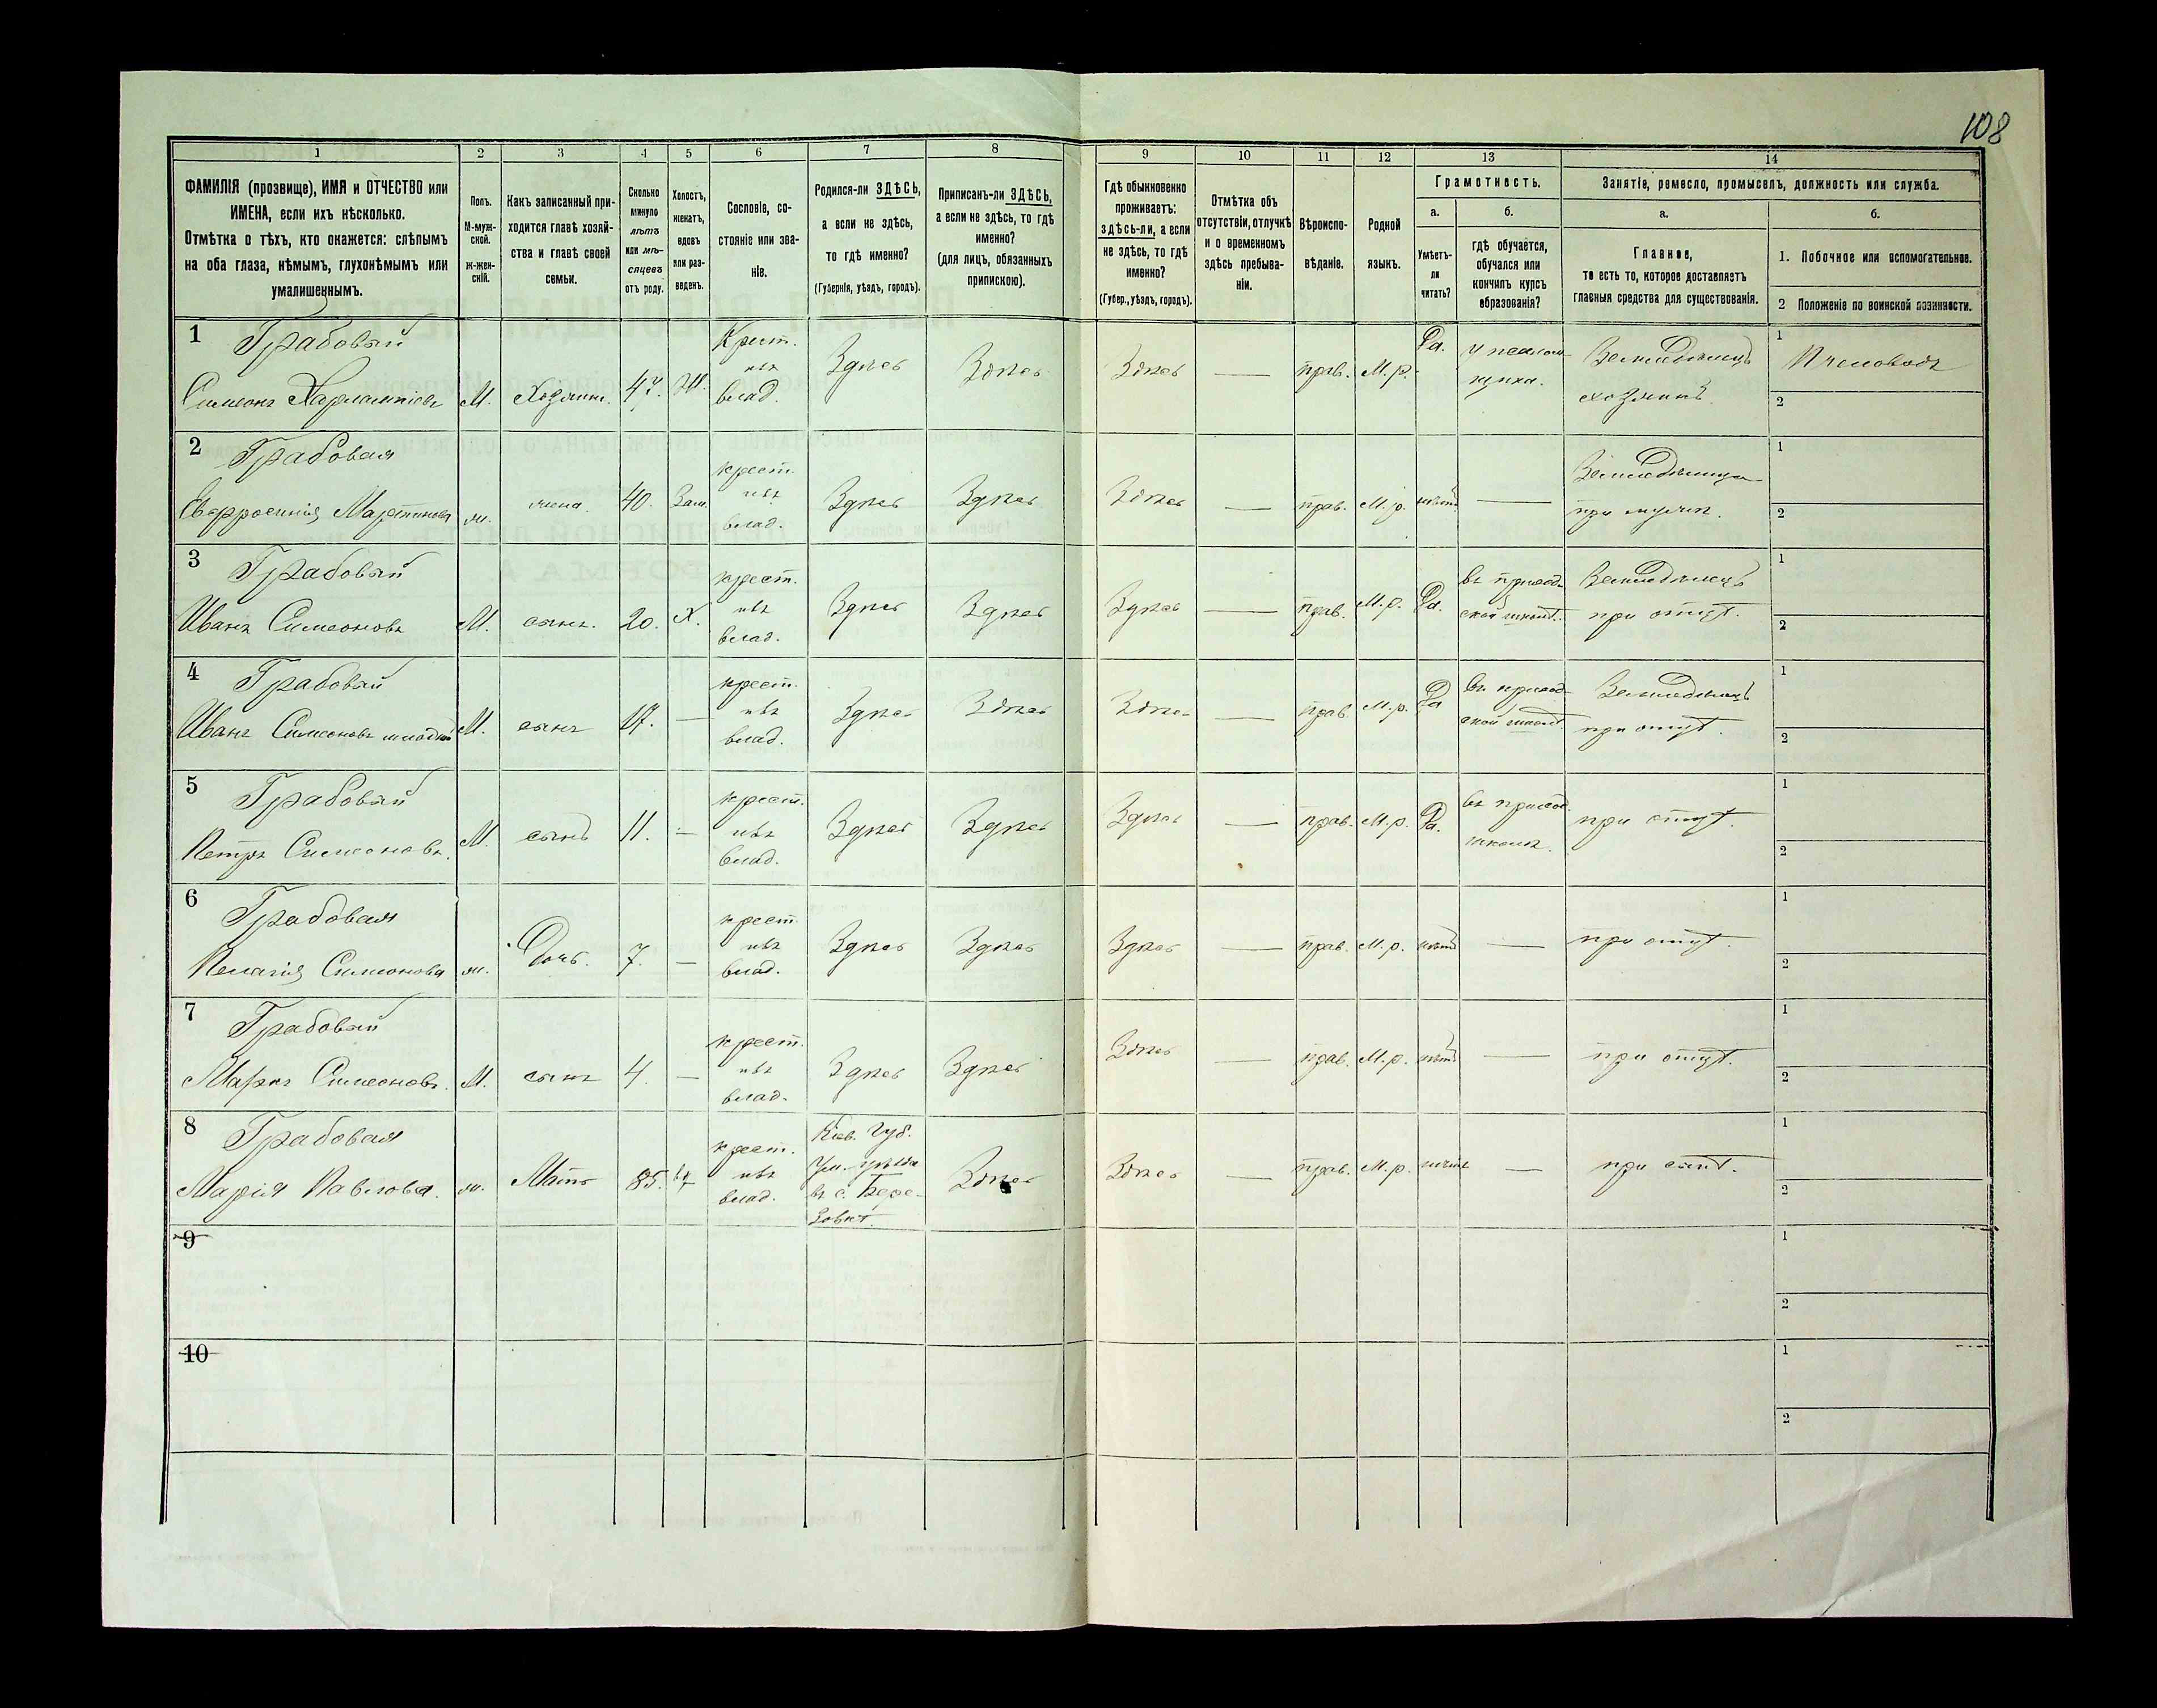 108
1 2 3 4 5 6 7 8 9 10 11 12 13 14
ФАМИЛІЯ (прозвище), ИМЯ и ОТЧЕСТВО или
ИМЕНА, если ихъ нѣсколько.
Отмѣтка о тѣхъ, кто окажется: слѣпымъ
на оба глаза, нѣмымъ, глухонѣмымъ или
умалишеннымъ.
Полъ.
М-муж-
ской.
ж-жен-
скій.
Какъ записанный при-
ходится главѣ хозяй-
ства и главѣ своей
семьи.
Сколько
минуло
лѣтъ
или мѣ-
сяцевъ
отъ роду.
Холостъ,
женатъ,
вдовъ
или раз-
веденъ.
Сословіе, со-
стояніе или зва-
ніе.
Родился-ли ЗДѢСЬ,
а если не здѣсь,
то гдѣ именно?
(Губернія, уѣздъ, городъ).
Приписанъ-ли ЗДѢСЬ,
а если не здѣсь, то гдѣ
именно?
(для лицъ, обязанныхъ
припискою).
Гдѣ обыкновенно
проживаетъ:
здѣсь-ли, а если
не здѣсь, то гдѣ
именно?
(Губер., уѣздъ, городъ).
Отмѣтка объ
отсутствіи, отлучкѣ
и о временномъ
здѣсь пребыва-
ніи.
Вѣроиспо-
вѣданіе.
Родной
языкъ.
Грамотность.
а.
Умѣетъ-
ли
читать?
б.
гдѣ обучается,
обучался или
кончилъ курсъ
образованія?
Занятіе, ремесло, промыселъ, должность или служба.
а.
Главное,
то есть то, которое доставляетъ
главныя средства для существованія.
б.
1. Побочное или вспомогательное.
2 Положеніе по воинской повинности.
1 Грабовый
Симеонъ Харлампіевъ М. Хозяинъ. 47. Ж.
Крест.
изъ
влад.
Здѣсь Здѣсь Здѣсь — прав. М.р. Да.
Земледѣлецъ
хозяинъ
1 Пчеловодъ
2
2 Грабовая
Евфросинія Мартинова ж. жена. 40. Зам.
крест.
изъ
влад.
Здѣсь Здѣсь Здѣсь — прав. М.р. нѣтъ —
Земледѣлица
при мужѣ.
1
2
3 Грабовый
Иванъ Симеоновъ М. сынъ. 20. Х.
крест.
изъ
влад.
Здѣсь Здѣсь Здѣсь — прав. М.р. Да.
въ приход-
ской школѣ.
Земледѣлецъ
при отцѣ.
1
2
4 Грабовый
Иванъ Симеоновъ М. сынъ 17. —
крест.
изъ
влад.
Здѣсь Здѣсь Здѣсь — прав. М.р. Да
въ приход-
ской школѣ
Земледѣлецъ
при отцѣ.
1
2
5 Грабовый
Петръ Симеоновъ. М. сынъ 11. —
крест.
изъ
влад.
Здѣсь Здѣсь Здѣсь — прав. М.р. Да.
въ приход.
школѣ.
при отцѣ.
1
2
6 Грабовая
Пелагія Симеонова ж. Дочь. 7. —
крест.
изъ
влад.
Здѣсь Здѣсь Здѣсь — прав. М.р. нѣтъ — при отцѣ.
1
2
7 Грабовый
Маркъ Симеоновъ. М. сынъ 4. —
крест.
изъ
влад.
Здѣсь Здѣсь Здѣсь — прав. М.р. нѣтъ — при отцѣ.
1
2
8 Грабовая
Марія Павлова. ж. Мать 85.
крест.
изъ
влад.
Кіев. Губ.
Ум. уѣзда
въ с. Бере-
зовкѣ.
Здѣсь Здѣсь — прав. М.р. нѣтъ — при сынѣ.
1
2
9
1
2
10
1
2